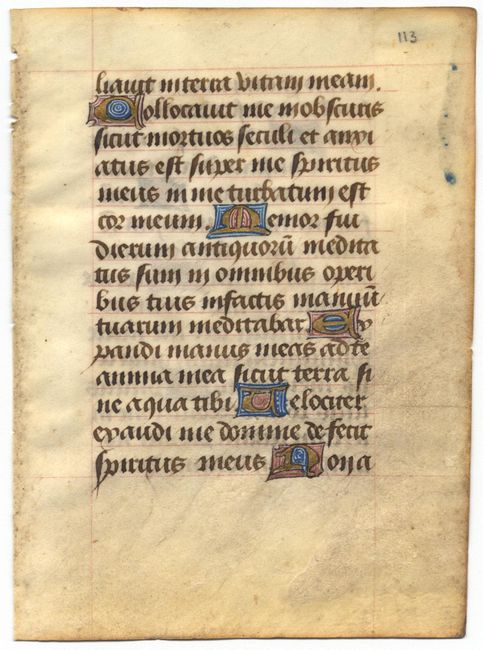 113
liauit in terra vitam meam.
Collocauit me in obscuris
sicut mortuos seculi et anxi
atus est super me spiritus
meus in me turbatum est
cor meum. Memor fui
dierum antiquorū medita
tus sum in omnibus operi
bus tuis in factis manuū
tuarum meditabar. Ex
pandi manus meas ad te
anima mea sicut terra si
ne aqua tibi Velociter
exaudi me domine defecit
spiritus meus Non a